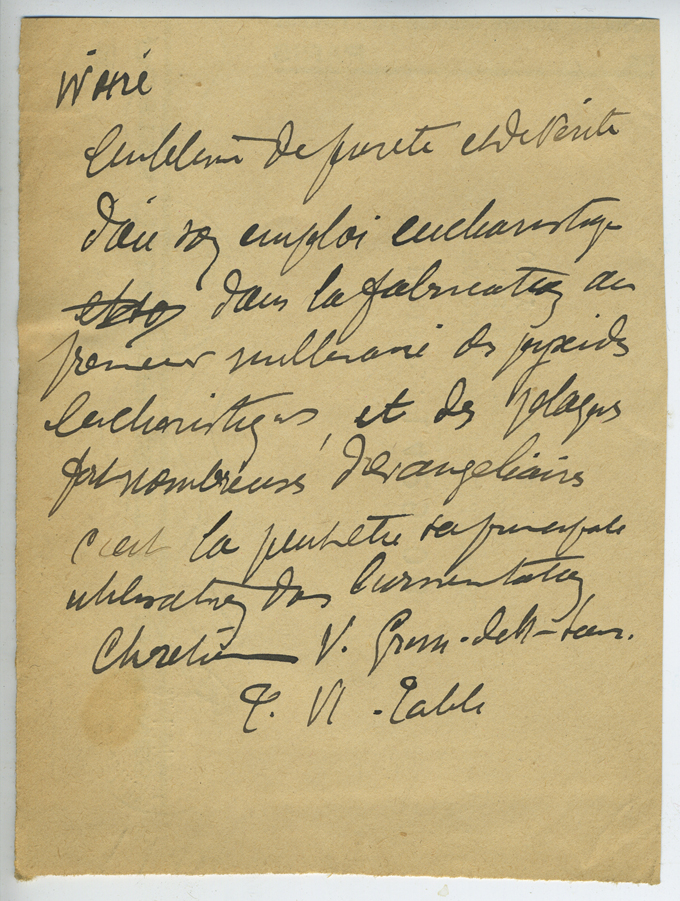 Ivoire
Emblème de pureté et de vérité
d'où son emploi eucharistique
dans la fabrication au
premier millénaire des pyxides
eucharistiques, et des plaques
fort nombreuses d'évangéliaires
c'est là peut être sa principale
utilisation dans l'ornementation
Chrétienne V. de
T. VI - Table